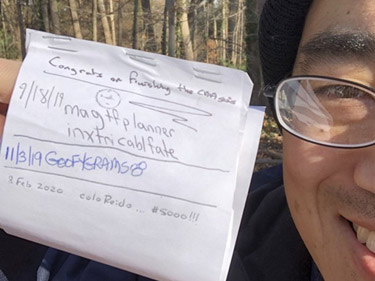 Congrats on finishing the CRA series
9/18/19
magffplanner
inxtricablfate
11/3/19 GeoFXGRAMS
8 Feb 2020 coloReido ... #5000!!!